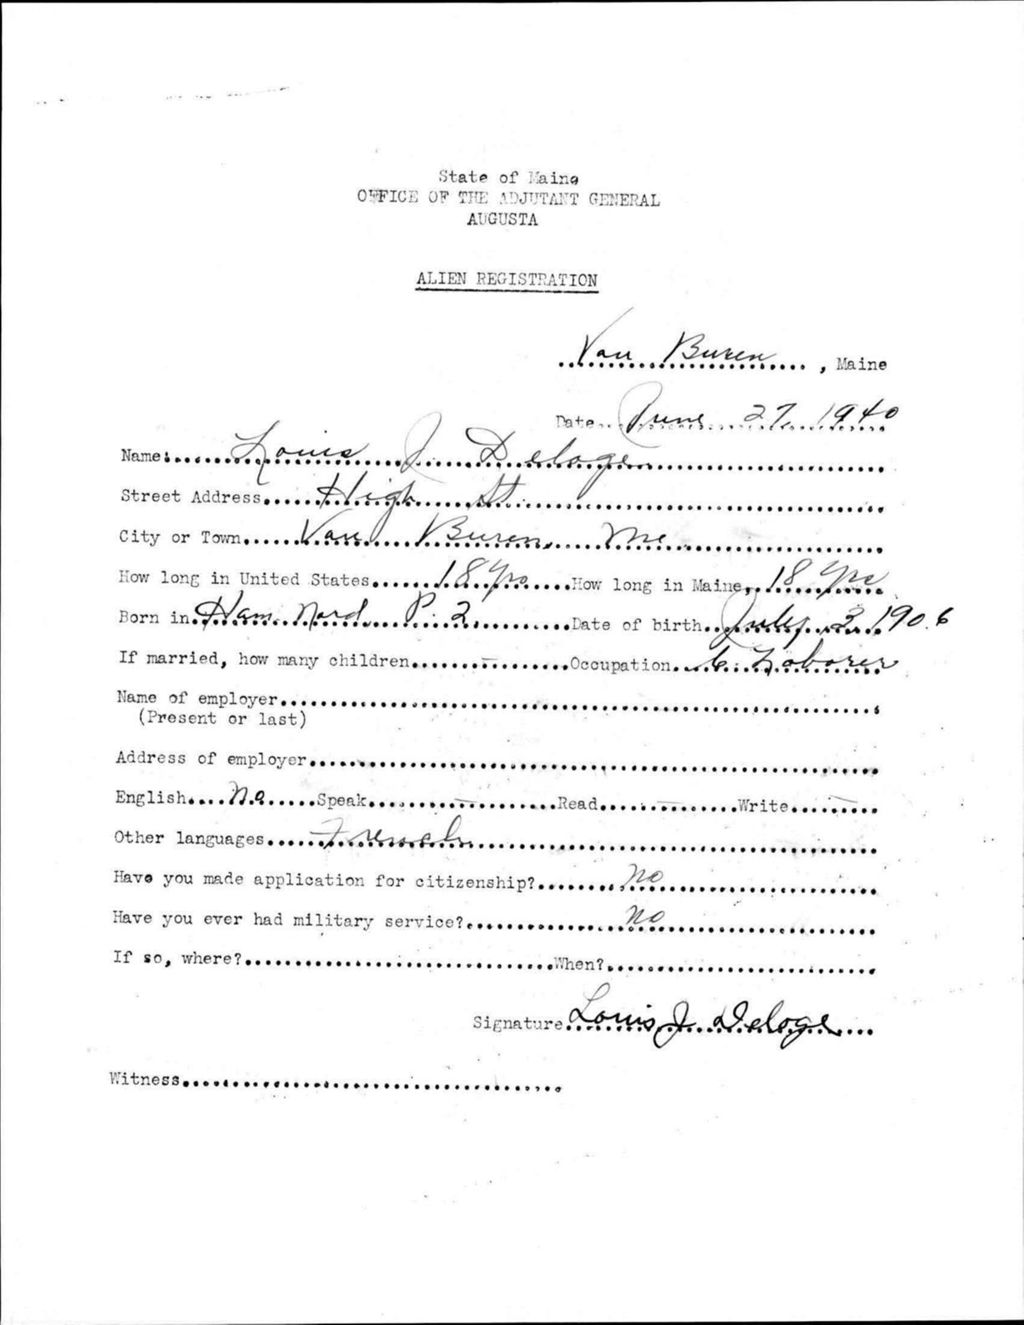 State of Maine
OFFICE OF THE ADJUTANT GENERAL
AUGUSTA
ALIEN REGISTRATION
Van Buren, Maine
Date June 27 1940
Name Louis J. Deloge
Street Address High St.
City or Town Van Buren, Me
How long in United States 18 Yrs How long in Maine 18 Yrs
Born in Ham Nord P. 2 Date of birth July 2 1906
If married, how many children - Occupation Laborer
Name of employer
(Present or last)
Address of employer
English No Speak - Read - Write -
Other languages French
Have you made application for citizenship? No
Have you ever had military service? No
If so, where? When?
Signature Louis J. Deloge
Witness